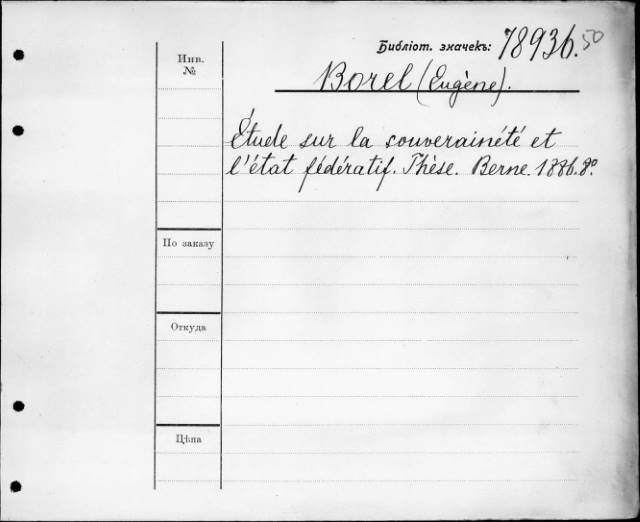 Библіот. значекъ: 78936.50
Инв.
№
Borel (Eugène).
Étude sur la souverainété et
l'état fédératif. Thèse. Berne. 1886. 8º.
По заказу
Откуда
Цѣна